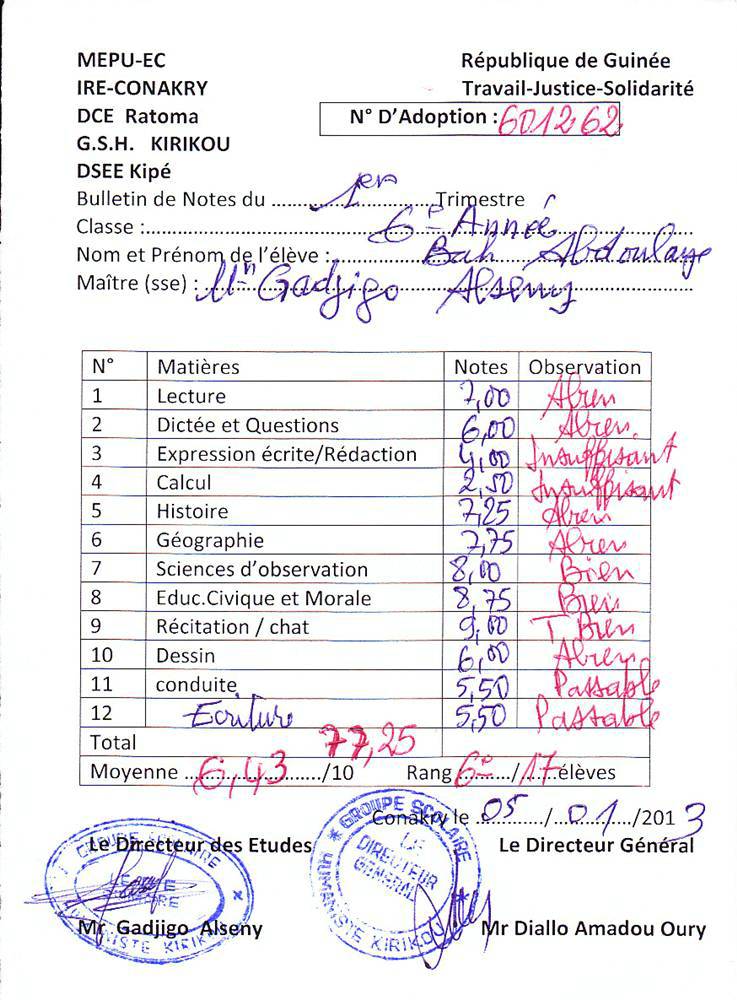 MEPU-EC République de Guinée
IRE-CONAKRY Travail-Justice-Solidarité
DCE Ratoma N° D'Adoption : 601262
G.S.H. KIRIKOU
DSEE Kipé
Bulletin de Notes du ........1er........Trimestre
Classe :........6e Année........
Nom et Prénom de l'élève :........Bah Abdoulaye
Maître (sse) : Mr Gadjigo Alseny
N° Matières Notes Observation
1 Lecture 7,00 Abien
2 Dictée et Questions 6,00 Abien.
3 Expression écrite/Rédaction 4,00 Insuffisant
4 Calcul 2,50 Insuffisant
5 Histoire 7,25 Abien
6 Géographie 7,75 Abien
7 Sciences d'observation 8,00 Bien
8 Educ.Civique et Morale 8,75 Bien
9 Récitation / chat 9,00 T Bien
10 Dessin 6,00 Abien
11 conduite 5,50 Passable
12 Ecriture 5,50 Passable
Total 77,25
Moyenne ...6,43.../10 Rang 6e.../17...élèves
Conakry le ...05.../...01.../2013
Le Directeur des Etudes Le Directeur Général
GROUPE SCOLAIRE
LE DIRECTEUR GENERAL
HUMANISTE KIRIKOU
Mr Gadjigo Alseny Mr Diallo Amadou Oury